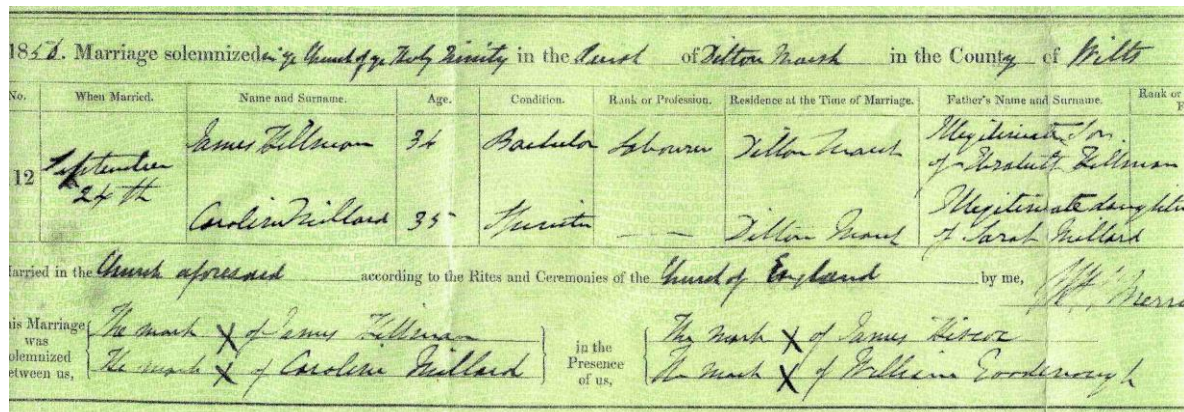 1856. Marriage solemnized in ye Church of ye Holy Trinity in the Parish of Dilton Marsh in the County of Wilts
No. When Married. Name and Surname. Age. Condition. Rank or Profession. Residence at the Time of Marriage. Father's Name and Surname. Rank or
12 September 24th
James Hillman 34 Bachelor Labourer Dilton Marsh Illegitimate Son of Elizabeth Hillman
Caroline Millard 35 Spinster — — Dilton Marsh Illegitimate daughter of Sarah Millard
arried in the Church aforesaid according to the Rites and Ceremonies of the Church of England by me,
his Marriage was olemnized etween us,
The mark X of James Hillman
The mark X of Caroline Millard
in the Presence of us,
The mark X of James Hiscox
The mark X of William Goodenough